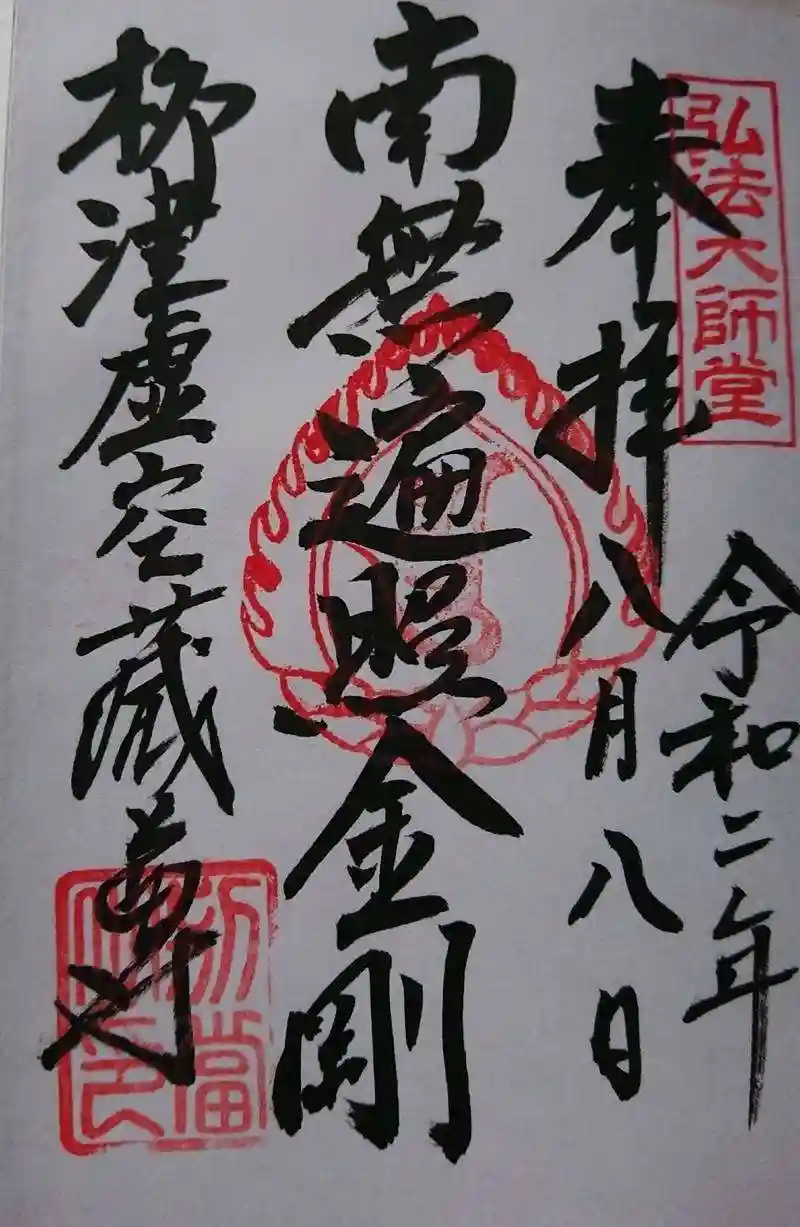 弘法大師堂
奉拝
令和二年
八月八日
南無遍照金剛
柳津虚空蔵尊
別當
印